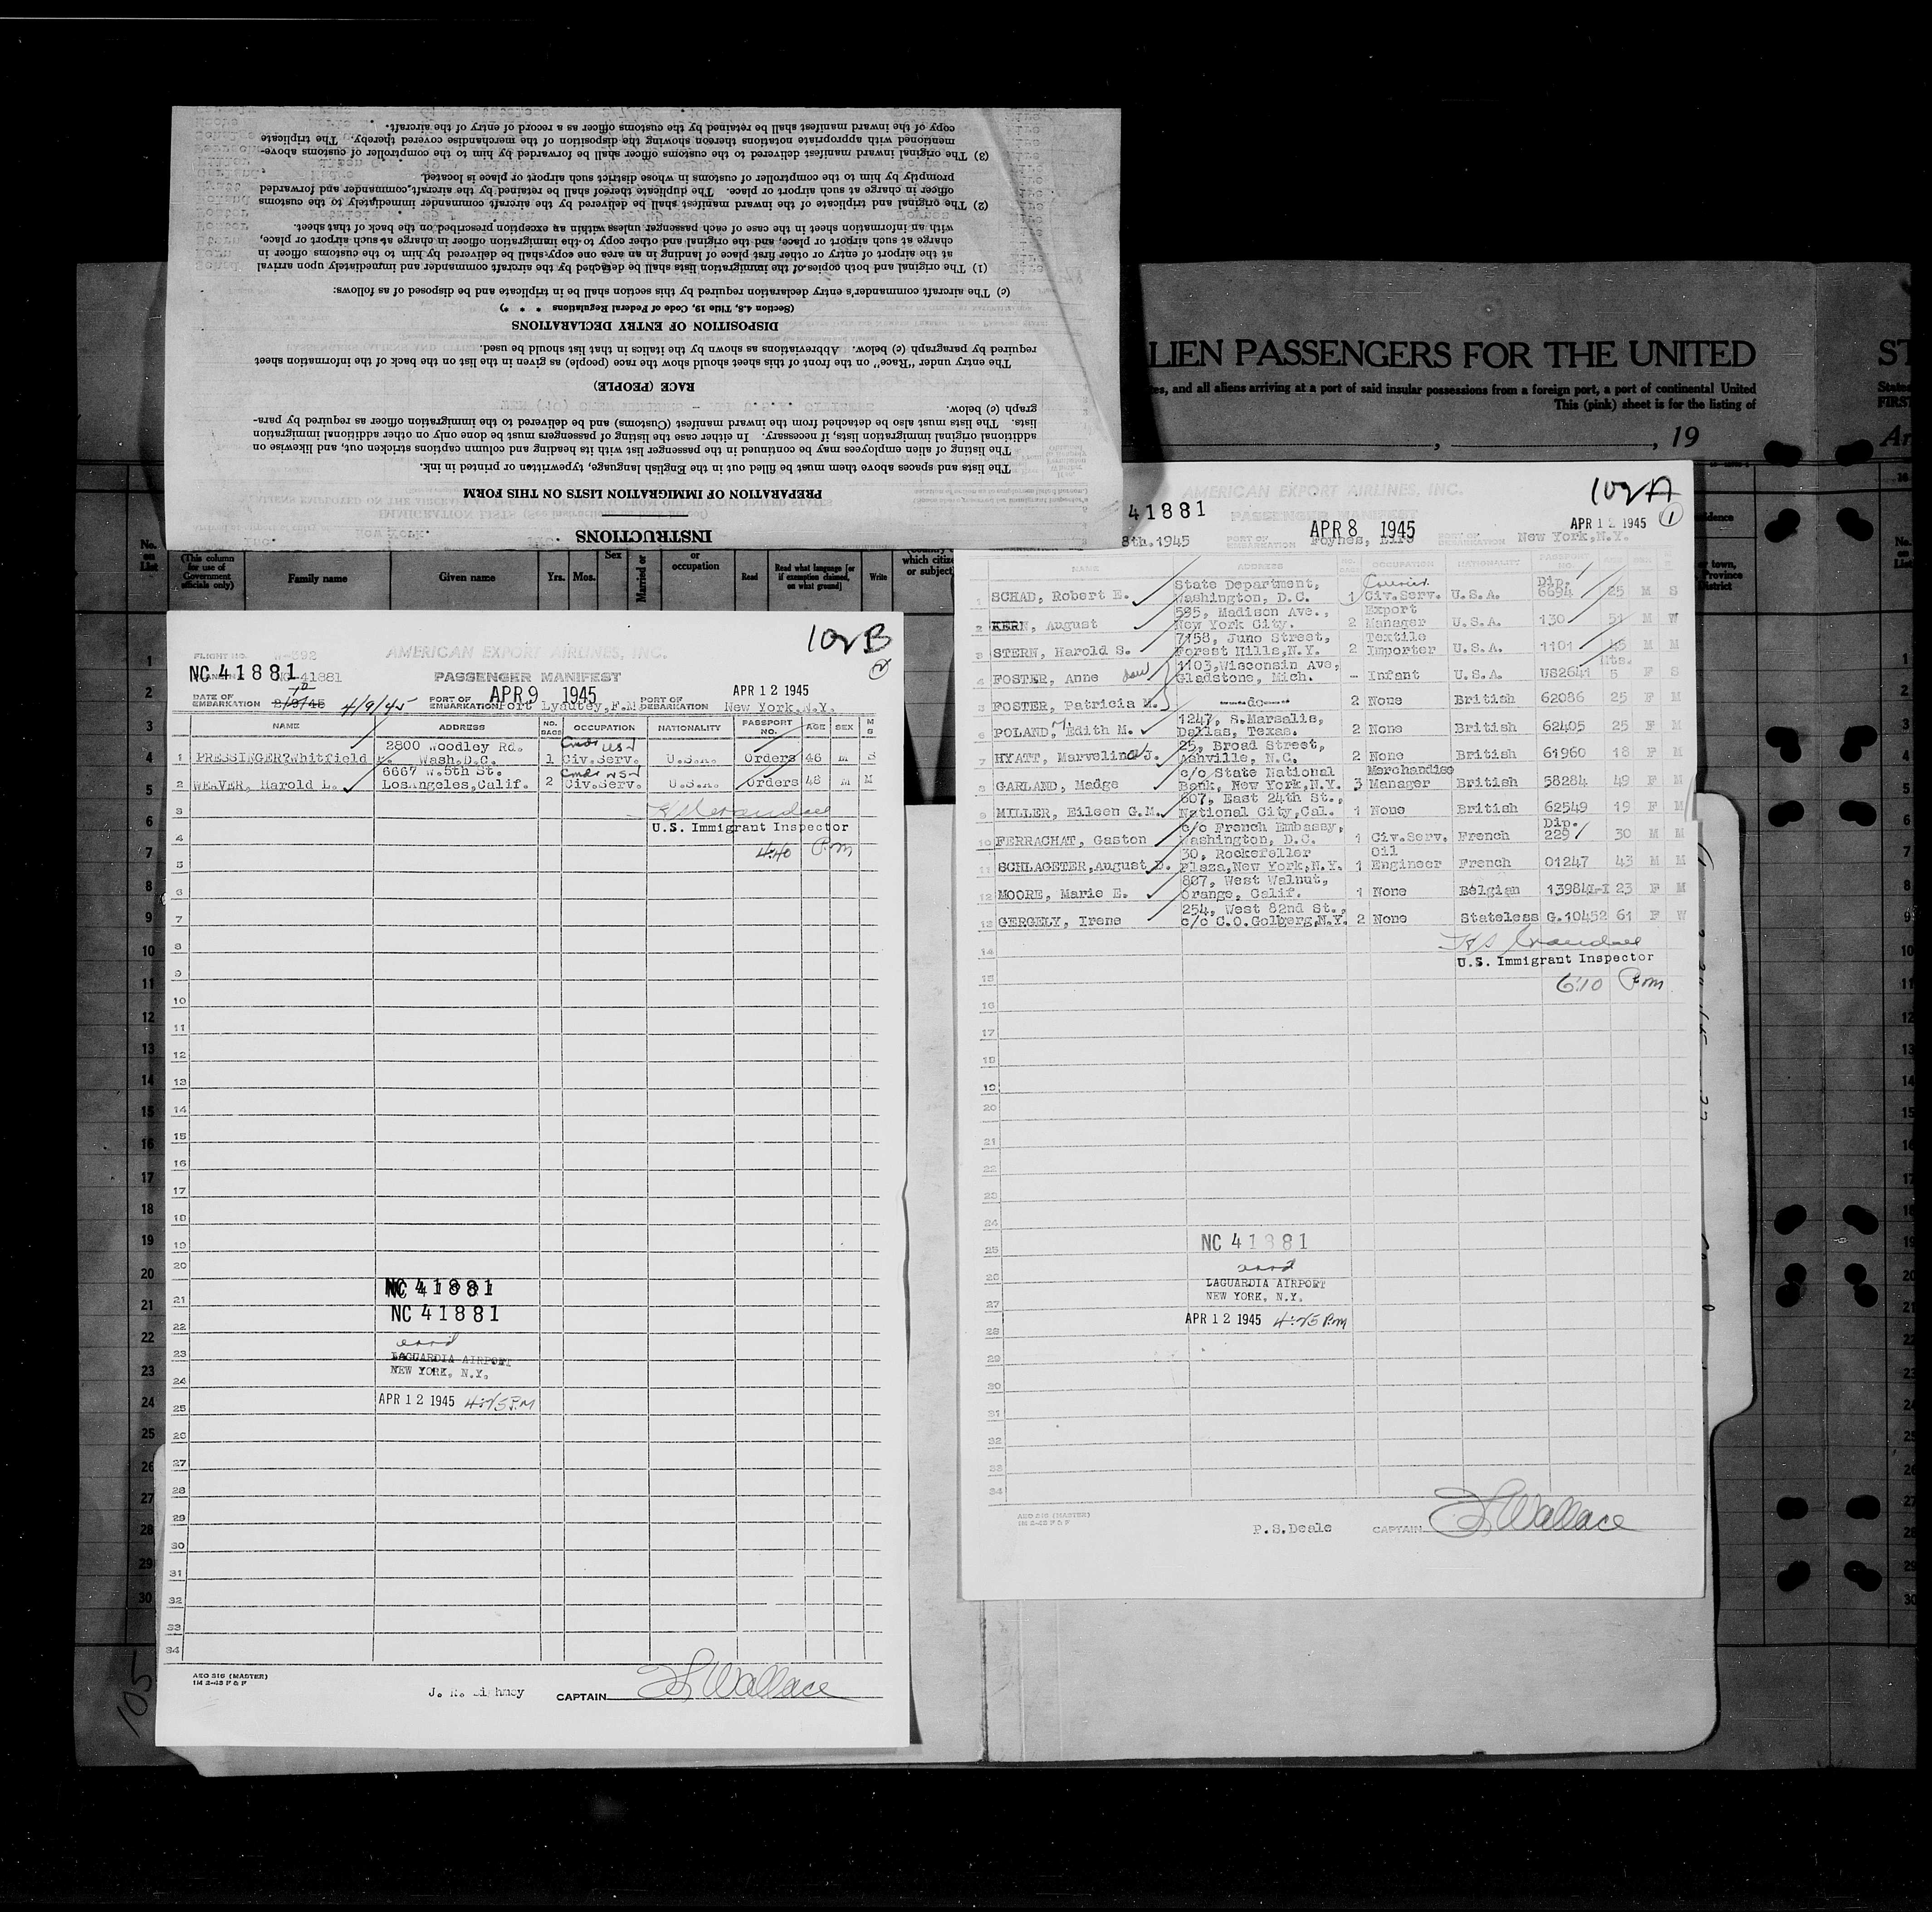 INSTRUCTIONS
PREPARATION OF IMMIGRATION LISTS ON THIS FORM
The lists and spaces above them must be filled out in the English language, typewritten or printed in ink.
The listing of alien employees may be continued in the passenger list with its heading and column captions stricken out, and likewise on
additional original immigration lists, if necessary. In either case the listing of passengers must be done only on other additional immigration
lists. The lists must also be detached from the inward manifest (Customs) and be delivered to the immigration officer as required by para-
graph (c) below.
RACE (PEOPLE)
The entry under "Race" on the front of this sheet should show the race (people) as given in the list on the back of the information sheet
required by paragraph (c) below. Abbreviations as shown by the italics in that list should be used.
DISPOSITION OF ENTRY DECLARATIONS
(Section 4.8, Title 19, Code of Federal Regulations * * *)
(c) The aircraft commander's entry declaration required by this section shall be in triplicate and be disposed of as follows:
(1) The original and both copies of the immigration lists shall be detached by the aircraft commander and immediately upon arrival
at the airport of entry or other first place of landing in an area one copy shall be delivered by him to the customs officer in
charge at such airport or place, and the original and other copy to the immigration officer in charge at such airport or place,
with an information sheet in the case of each passenger unless within an exception prescribed on the back of that sheet.
(2) The original and triplicate of the inward manifest shall be delivered by the aircraft commander immediately to the customs
officer in charge at such airport or place. The duplicate thereof shall be retained by the aircraft commander and forwarded
promptly by him to the comptroller of customs in whose district such airport or place is located.
(3) The original inward manifest delivered to the customs officer shall be forwarded by him to the comptroller of customs above-
mentioned with appropriate notations thereon showing the disposition of the merchandise covered thereby. The triplicate
copy of the inward manifest shall be retained by the customs officer as a record of entry of the aircraft.
LIEN PASSENGERS FOR THE UNITED
tes, and all aliens arriving at a port of said insular possessions from a foreign port, a port of continental United
This (pink) sheet is for the listing of
, , 19
ST
FIRST
No. on List
(This column for use of Government officials only)
Family name
Given name
Yrs. Mos.
Sex
Married or
or occupation
Read
Read what language [or if exemption claimed, on what ground]
Write
102B
2
FLIGHT NO.
AMERICAN EXPORT AIRLINES, INC.
NC 41881
PASSENGER MANIFEST
DATE OF EMBARKATION 4/9/45 PORT OF EMBARKATION APR 9 1945 Port Lyautey, F.M. PORT OF DEBARKATION APR 12 1945 New York, N.Y.
NAME ADDRESS NO. BAGS OCCUPATION NATIONALITY PASSPORT NO. AGE SEX M S
1 PRESSINGER?Whitfield 2800 Woodley Rd. Wash.D.C. 1 Civ.Serv. U.S.A. Orders 46 M S
2 WEAVER, Harold L. 6667 W.5th St. LosAngeles,Calif. 2 Civ.Serv. U.S.A. Orders 48 M M
U.S. Immigrant Inspector
4:40 P.m
NC 41881
NC 41881
LAGUARDIA AIRPORT
NEW YORK, N.Y.
APR 12 1945
AEO 316 (MASTER)
CAPTAIN Wallace
105
102A
1
AMERICAN EXPORT AIRLINES, INC.
41881
PASSENGER MANIFEST
8th.1945 PORT OF EMBARKATION APR 8 1945 Foynes, Eire PORT OF DEBARKATION APR 12 1945 New York,N.Y.
NAME ADDRESS OCCUPATION NATIONALITY PASSPORT NO.
1 SCHAD, Robert E. State Department, Washington, D.C. 1 Courier Civ.Serv. U.S.A. Dip. 6694 25 M S
2 KERN, August 595, Madison Ave., New York City. 2 Export Manager U.S.A. 130 51 M W
3 STERN, Harold S. 7158, Juno Street, Forest Hills,N.Y. 2 Textile Importer U.S.A. 1101 45 M M
4 FOSTER, Anne 1103,Wisconsin Ave, Gladstone, Mich. - Infant U.S.A. US2641 Mts. 5 F S
5 FOSTER, Patricia M. ----do---- 2 None British 62086 25 F M
6 POLAND, Edith M. 1247, S.Marsalis, Dallas, Texas. 2 None British 62405 25 F M
7 HYATT, Marvelina J. 25, Broad Street, Ashville, N.C. 2 None British 61960 18 F M
8 GARLAND, Madge c/o State National Bank, New York,N.Y. 3 Merchandise Manager British 58284 49 F M
9 MILLER, Eileen G.M. 807, East 24th St., National City,Cal. 1 None British 62549 19 F M
10 FERRACHAT, Gaston c/o French Embassy, Washington, D.C. 1 Civ.Serv. French Dip. 229 30 M M
11 SCHLAGETER,August D. 30, Rockefeller Plaza,New York,N.Y. 1 Oil Engineer French 01247 43 M M
12 MOORE, Marie E. 807, West Walnut, Orange, Calif. 1 None Belgian 13984L-I 23 F M
13 GERGELY, Irene 254, West 82nd St., c/o C.O.Golberg,N.Y. 2 None Stateless G.10452 61 F W
U.S. Immigrant Inspector
6:10 P.m
NC 41881
LAGUARDIA AIRPORT
NEW YORK, N.Y.
APR 12 1945
P.S.Deale CAPTAIN Wallace